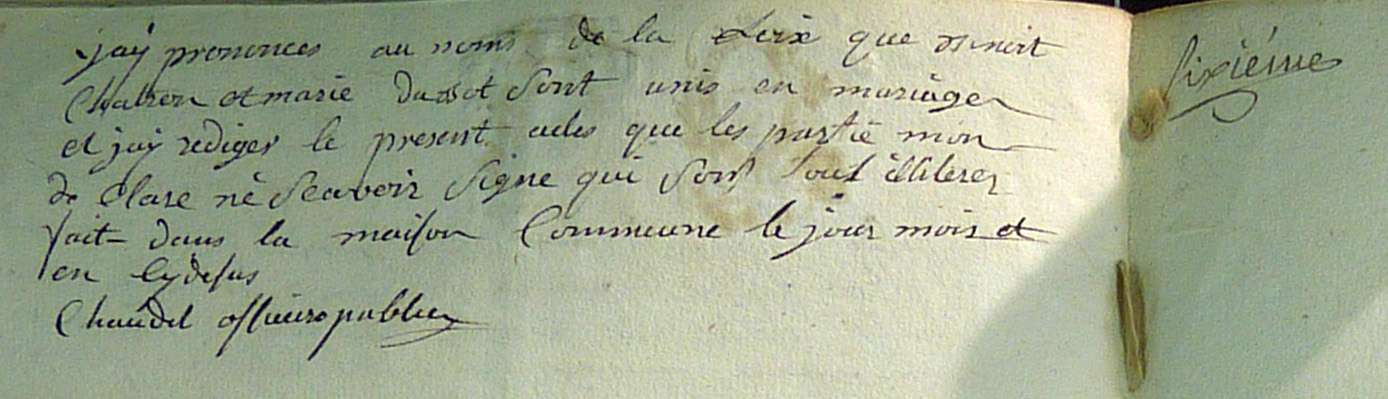 jay prononces au noms de la Loix que Benoit
Chabron et marie Dussot Sont unis en mariage
et jay rediges le present actes que les partie mon
de Clare né Scavoir Signe qui Sont tout illiterez
fait dans la maison Commeune le jour mois et
en Cydesus
Chaudel officiere publiez
sixiéme